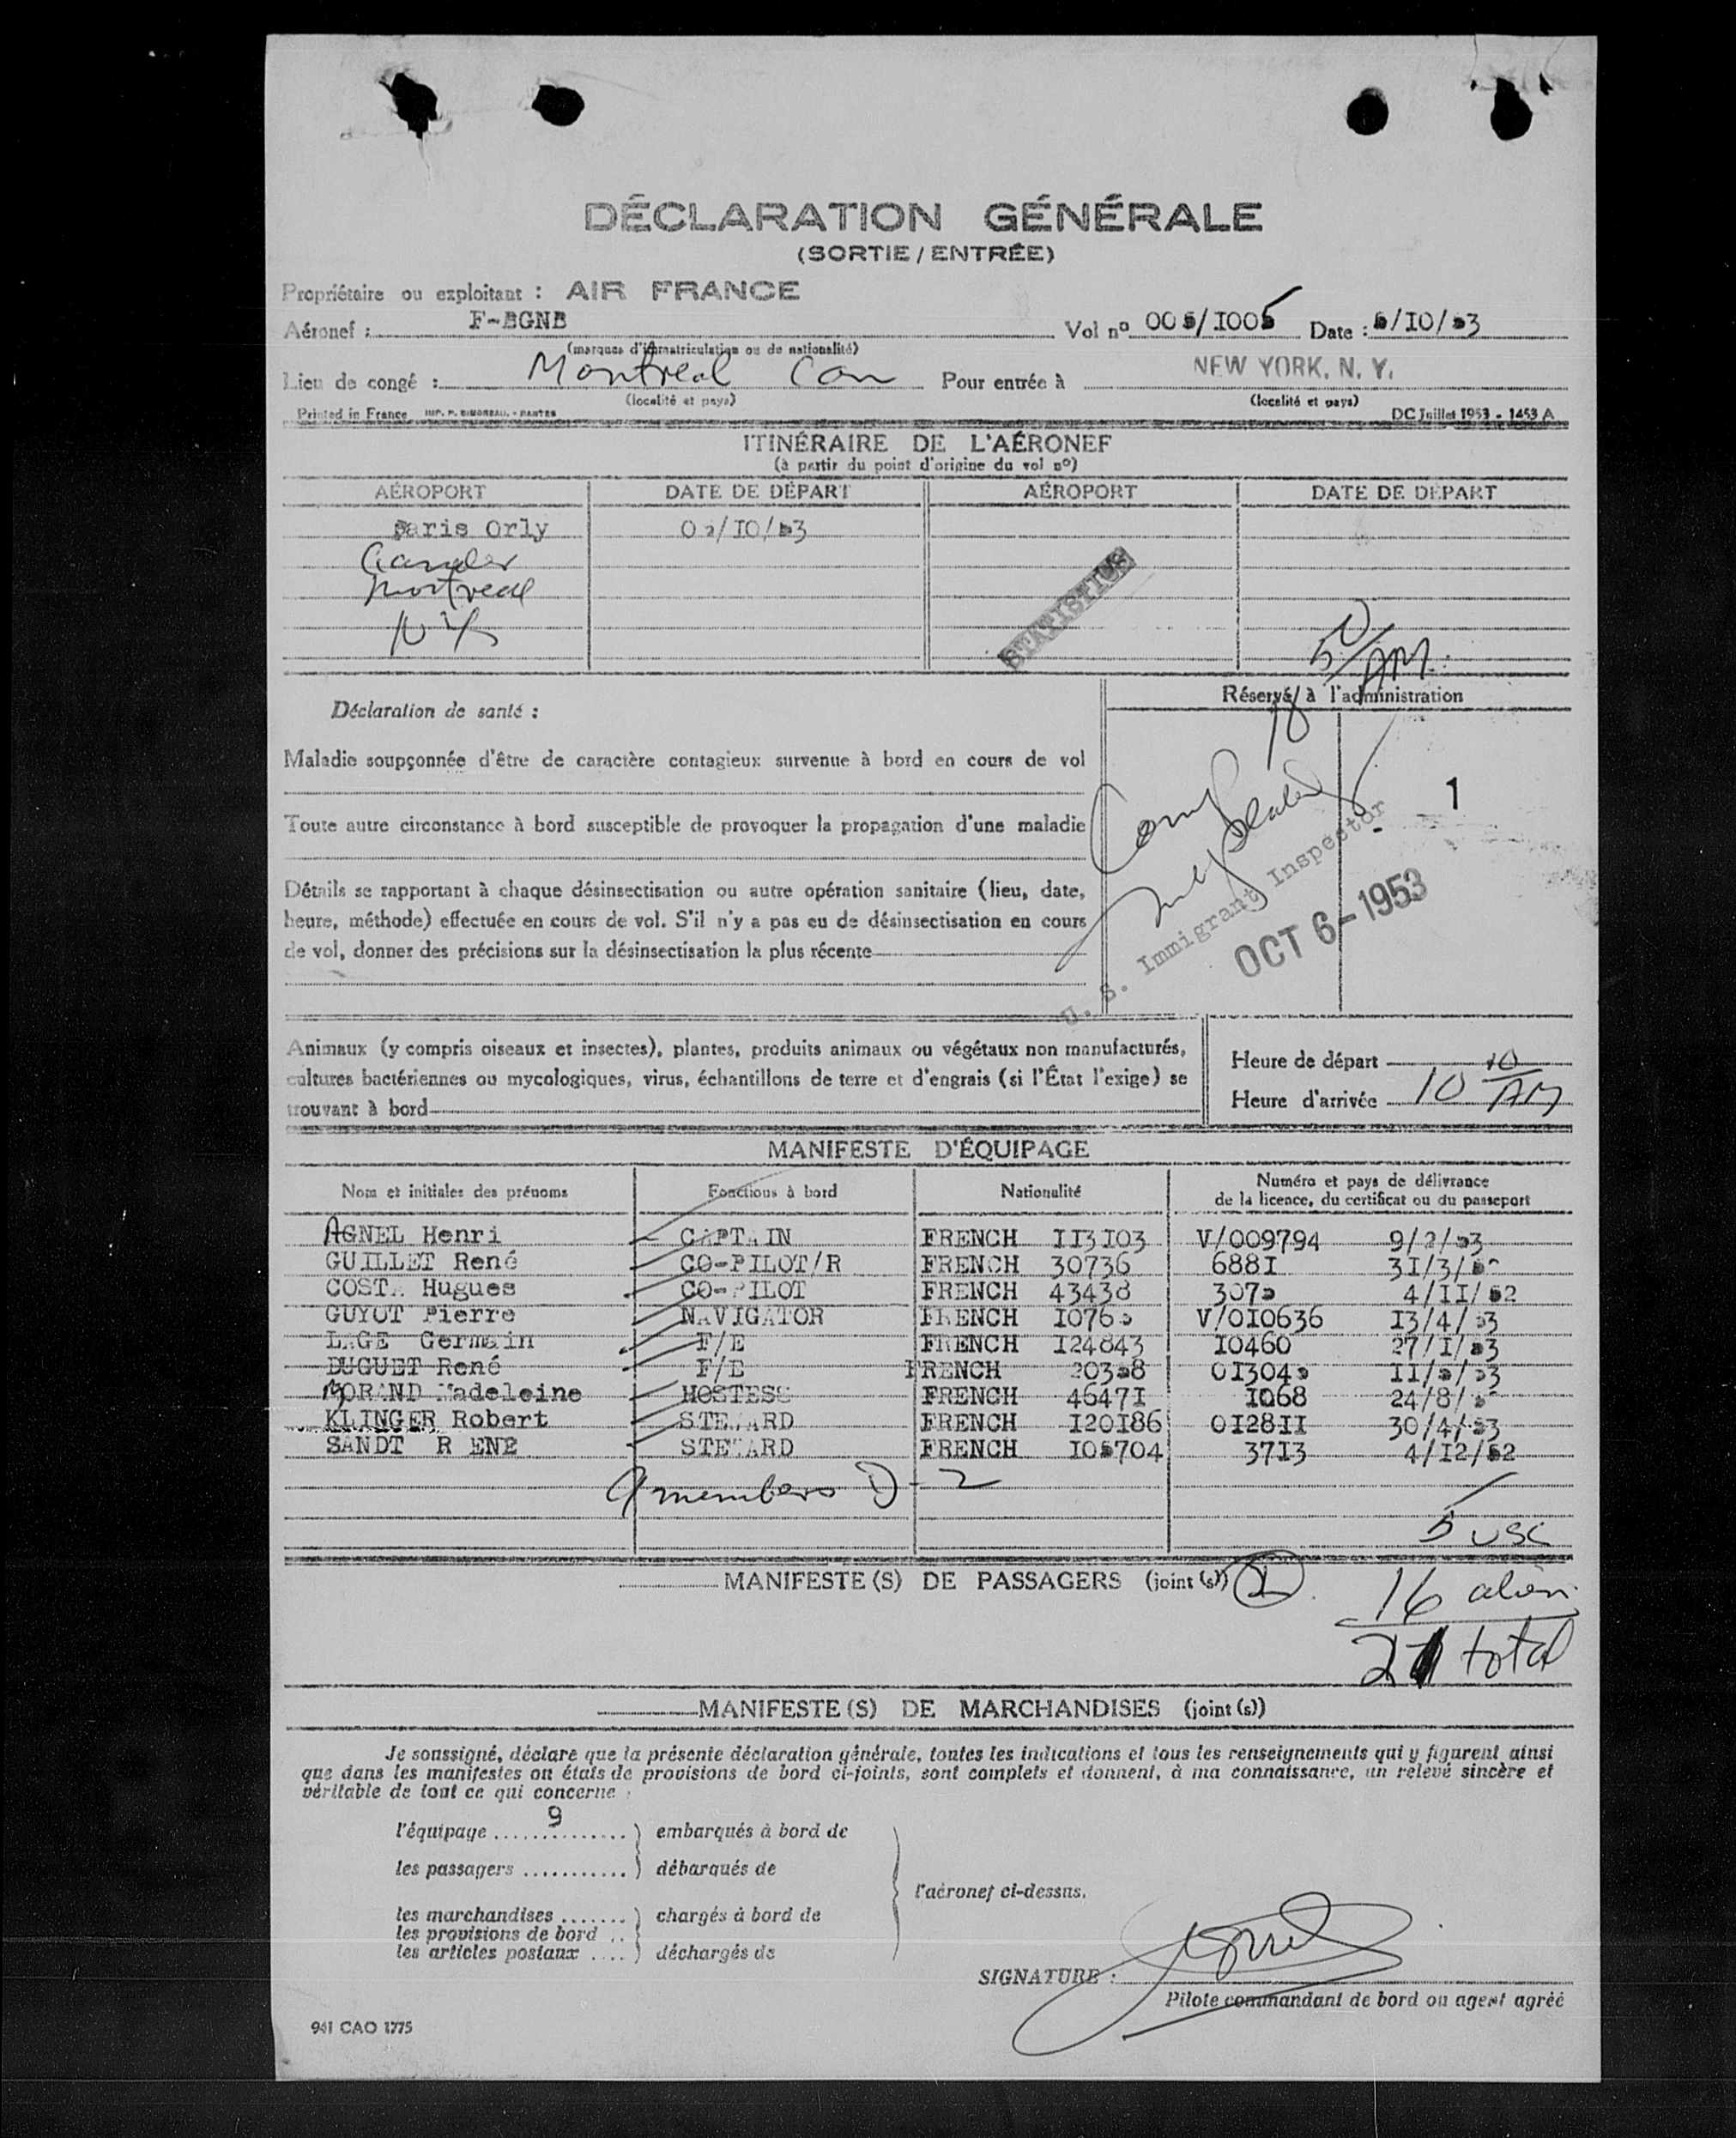 DÉCLARATION GÉNÉRALE
(SORTIE / ENTRÉE)
Propriétaire ou exploitant : AIR FRANCE
Aéronef : F-BGNB Vol nº 005/I005 Date : 5/IO/53
(marques d'immatriculation ou de nationalité)
Lieu de congé : Montreal Can Pour entrée à NEW YORK, N. Y.
(localité et pays) (localité et pays)
Printed in France DC Juillet 1953 - 1453 A
ITINÉRAIRE DE L'AÉRONEF
(à partir du point d'origine du vol nº)
AÉROPORT DATE DE DÉPART AÉROPORT DATE DE DÉPART
Paris Orly /IO/53
Gander
Montreal
NY
STATISTICS
50/AM
Réservé à l'administration
Déclaration de santé :
Maladie soupçonnée d'être de caractère contagieux survenue à bord en cours de vol
1
Toute autre circonstance à bord susceptible de provoquer la propagation d'une maladie
Détails se rapportant à chaque désinsectisation ou autre opération sanitaire (lieu, date,
heure, méthode) effectuée en cours de vol. S'il n'y a pas eu de désinsectisation en cours
de vol, donner des précisions sur la désinsectisation la plus récente
U. S. Immigrant Inspector
OCT 6-1953
Animaux (y compris oiseaux et insectes), plantes, produits animaux ou végétaux non manufacturés,
cultures bactériennes ou mycologiques, virus, échantillons de terre et d'engrais (si l'État l'exige) se
trouvant à bord
Heure de départ
Heure d'arrivée 10 10/AM
MANIFESTE D'ÉQUIPAGE
Nom et initiales des prénoms Fonctions à bord Nationalité Numéro et pays de délivrance
de la licence, du certificat ou du passeport
AGNEL Henri CAPTAIN FRENCH II3I03 V/009794 9/2/53
GUILLET René CO-PILOT/R FRENCH 30736 688I 3I/3/
COSTA Hugues CO-PILOT FRENCH 43438 3075 4/II/52
GUYOT Pierre NAVIGATOR FRENCH I0765 V/0I0636 I3/4/53
LAGE Germain F/E FRENCH I24843 I0460 27/I/53
DUGUET René F/E FRENCH 20358 0I3045 II/5/53
MORAND Madeleine HOSTESS FRENCH 4647I I068 24/8/
KLINGER Robert STEWARD FRENCH I20I86 0I28II 30/4/53
SANDT R ENE STEWARD FRENCH I05704 37I3 4/I2/52
9 members D - 2
5 USC
MANIFESTE(S) DE PASSAGERS (joint(s)) 2
16 alien
21 total
MANIFESTE(S) DE MARCHANDISES (joint(s))
Je soussigné, déclare que la présente déclaration générale, toutes les indications et tous les renseignements qui y figurent ainsi
que dans les manifestes ou états de provisions de bord ci-joints, sont complets et donnent, à ma connaissance, un relevé sincère et
véritable de tout ce qui concerne :
l'équipage 9 embarqués à bord de
les passagers débarqués de
l'aéronef ci-dessus.
les marchandises chargés à bord de
les provisions de bord
les articles postaux déchargés de
SIGNATURE :
Pilote commandant de bord ou agent agréé
941 CAO 1775